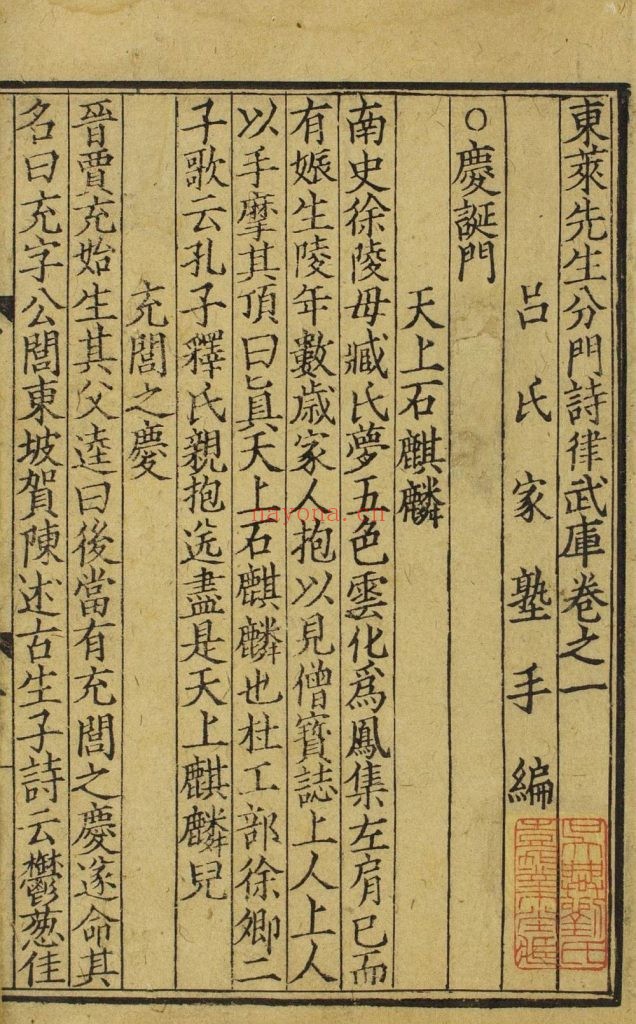 東萊先生分門詩律武庫卷之一
吕氏家塾手編
○慶誕門
天上石麒麟
南史徐陵母臧氏夢五色雲化爲鳳集左肩已而
有娠生陵年數歳家人抱以見僧寳誌上人上人
以手摩其頂曰眞天上石麒麟也杜工部徐卿二
子歌云孔子釋氏親抱送盡是天上麒麟兒
充閭之慶
晉賈充始生其父逵曰後當有充閭之慶遂命其
名曰充字公閭東坡賀陳述古生子詩云鬱葱佳
nayona.cn